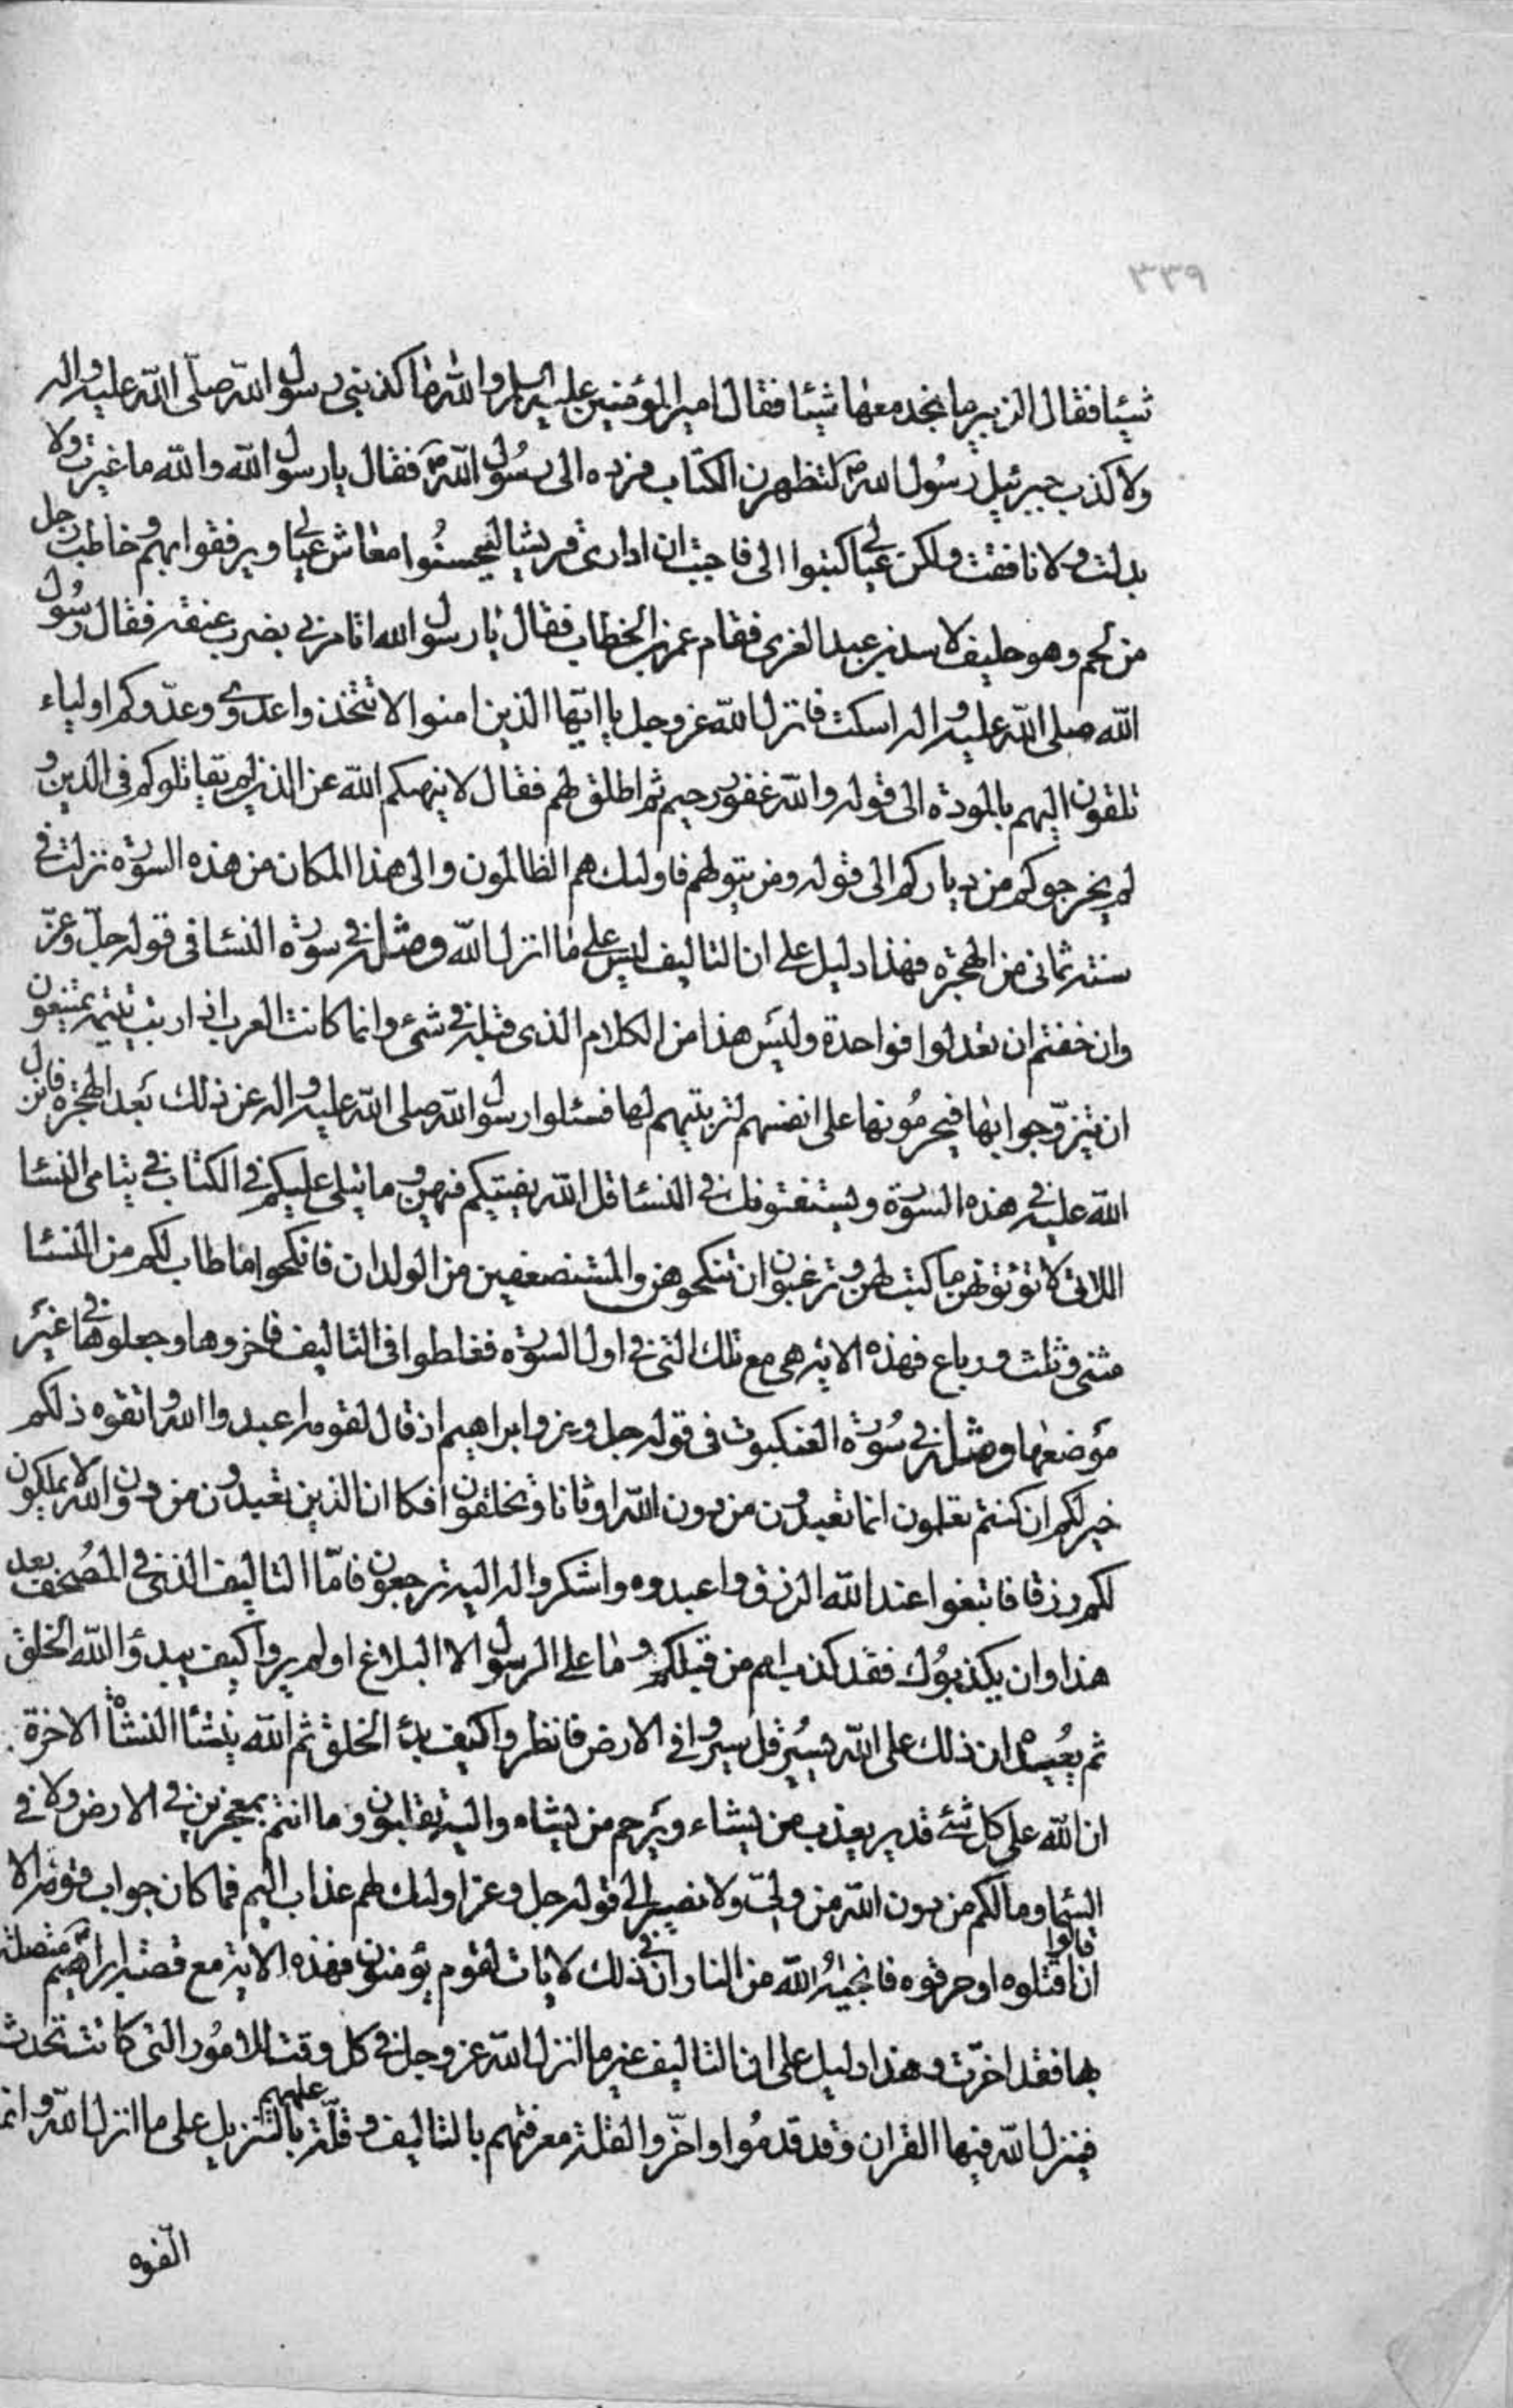 ٣٣٩
شيئا فقال الزبير ما نجد معها شيئا فقال امير المؤمنين عليه السلم والله ما كذبني رسول الله صلى الله عليه واله
ولا كذب جبرئيل رسول الله ص لتظهرن الكتاب فرده الى رسول الله ص فقال يا رسول الله والله ما غيرت ولا
بدلت ولا نافقت ولكن عيالي كتبوا الى فاحببت ان ادارى قريشا ليحسنوا معاش عيالي ويرفقوا بهم وخاطب رجل
من لحم وهو حليف لاسد بن عبد الغرى فقام عمر بن الخطاب فقال يا رسول الله اتامرني بضرب عنقه فقال رسول
الله صلى الله عليه واله اسكت فانزل الله عز وجل يا ايها الذين امنوا لا تتخذوا عدوى وعدوكم اولياء
تلقون اليهم بالمودة الى قوله والله غفور رحيم ثم اطلق لهم فقال لا ينهيكم الله عن الذين لم يقاتلوكم فى الدين و
لم يخرجوكم من دياركم الى قوله ومن يتولهم فاولئك هم الظالمون والى هذا المكان من هذه السورة نزلت في
سنة ثمانى من الهجرة فهذا دليل على ان التاليف ليس على ما انزل الله ومثله في سورة النسا فى قوله جل وعز
وان خفتم ان تعدلوا فواحدة وليس هذا من الكلام الذى قبله في شئ وانما كانت العرب اذا ربت يتيمة يمتنعون
ان يتزوجوا بها فيحرمونها على انفسهم لتربيتهم لها فسئلوا رسول الله صلى الله عليه واله عن ذلك بعد الهجرة فانزل
الله عليه في هذه السورة ويستفتونك في النسا قل الله يفتيكم فيهن وما يتلى عليكم في الكتاب في يتامى النسا
اللاتى لا تؤتونهن ما كتب لهن وترغبون ان تنكحوهن والمستضعفين من الولدان فانكحوا ما طاب لكم من النسا
مثنى وثلث ورباع فهذه الاية هى مع تلك التى في اول السورة فغلطوا فى التاليف فاخروها وجعلوها في غير
موضعها ومثله في سورة العنكبوت فى قوله جل وعز وابراهيم اذ قال لقومه اعبدوا الله واتقوه ذلكم
خير لكم ان كنتم تعلمون انما تعبدون من دون الله اوثانا وتخلقون افكا ان الذين تعبدون من دون الله لا يملكون
لكم رزقا فابتغوا عند الله الرزق واعبدوه واشكروا له اليه ترجعون فاما التاليف الذى في المصحف بعد
هذا وان يكذبوك فقد كذب امم من قبلكم وما على الرسول الا البلاغ اولم يروا كيف يبدؤ الله الخلق
ثم يعيده ان ذلك على الله يسير قل سيروا في الارض فانظروا كيف بدء الخلق ثم الله ينشأ النشأة الاخرة
ان الله على كل شئ قدير يعذب من يشاء ويرحم من يشاء واليه تقلبون وما انتم بمعجزين في الارض ولا في
السما وما لكم من دون الله من ولىّ ولا نصير الى قوله جل وعز اولئك لهم عذاب اليم فما كان جواب قومه الا
ان قالوا اقتلوه او حرقوه فانجيه الله من النار ان في ذلك لايات لقوم يؤمنون فهذه الاية مع قصة ابراهيم متصلة
بها فقد اخرت وهذا دليل على ان التاليف غير ما انزل الله عز وجل في كل وقت للامور التى كانت تحدث
فينزل الله فيها القران وقد قدموا واخروا لقلة معرفتهم بالتاليف وقلة علمهم بالتنزيل على ما انزل الله وانما
الفوه